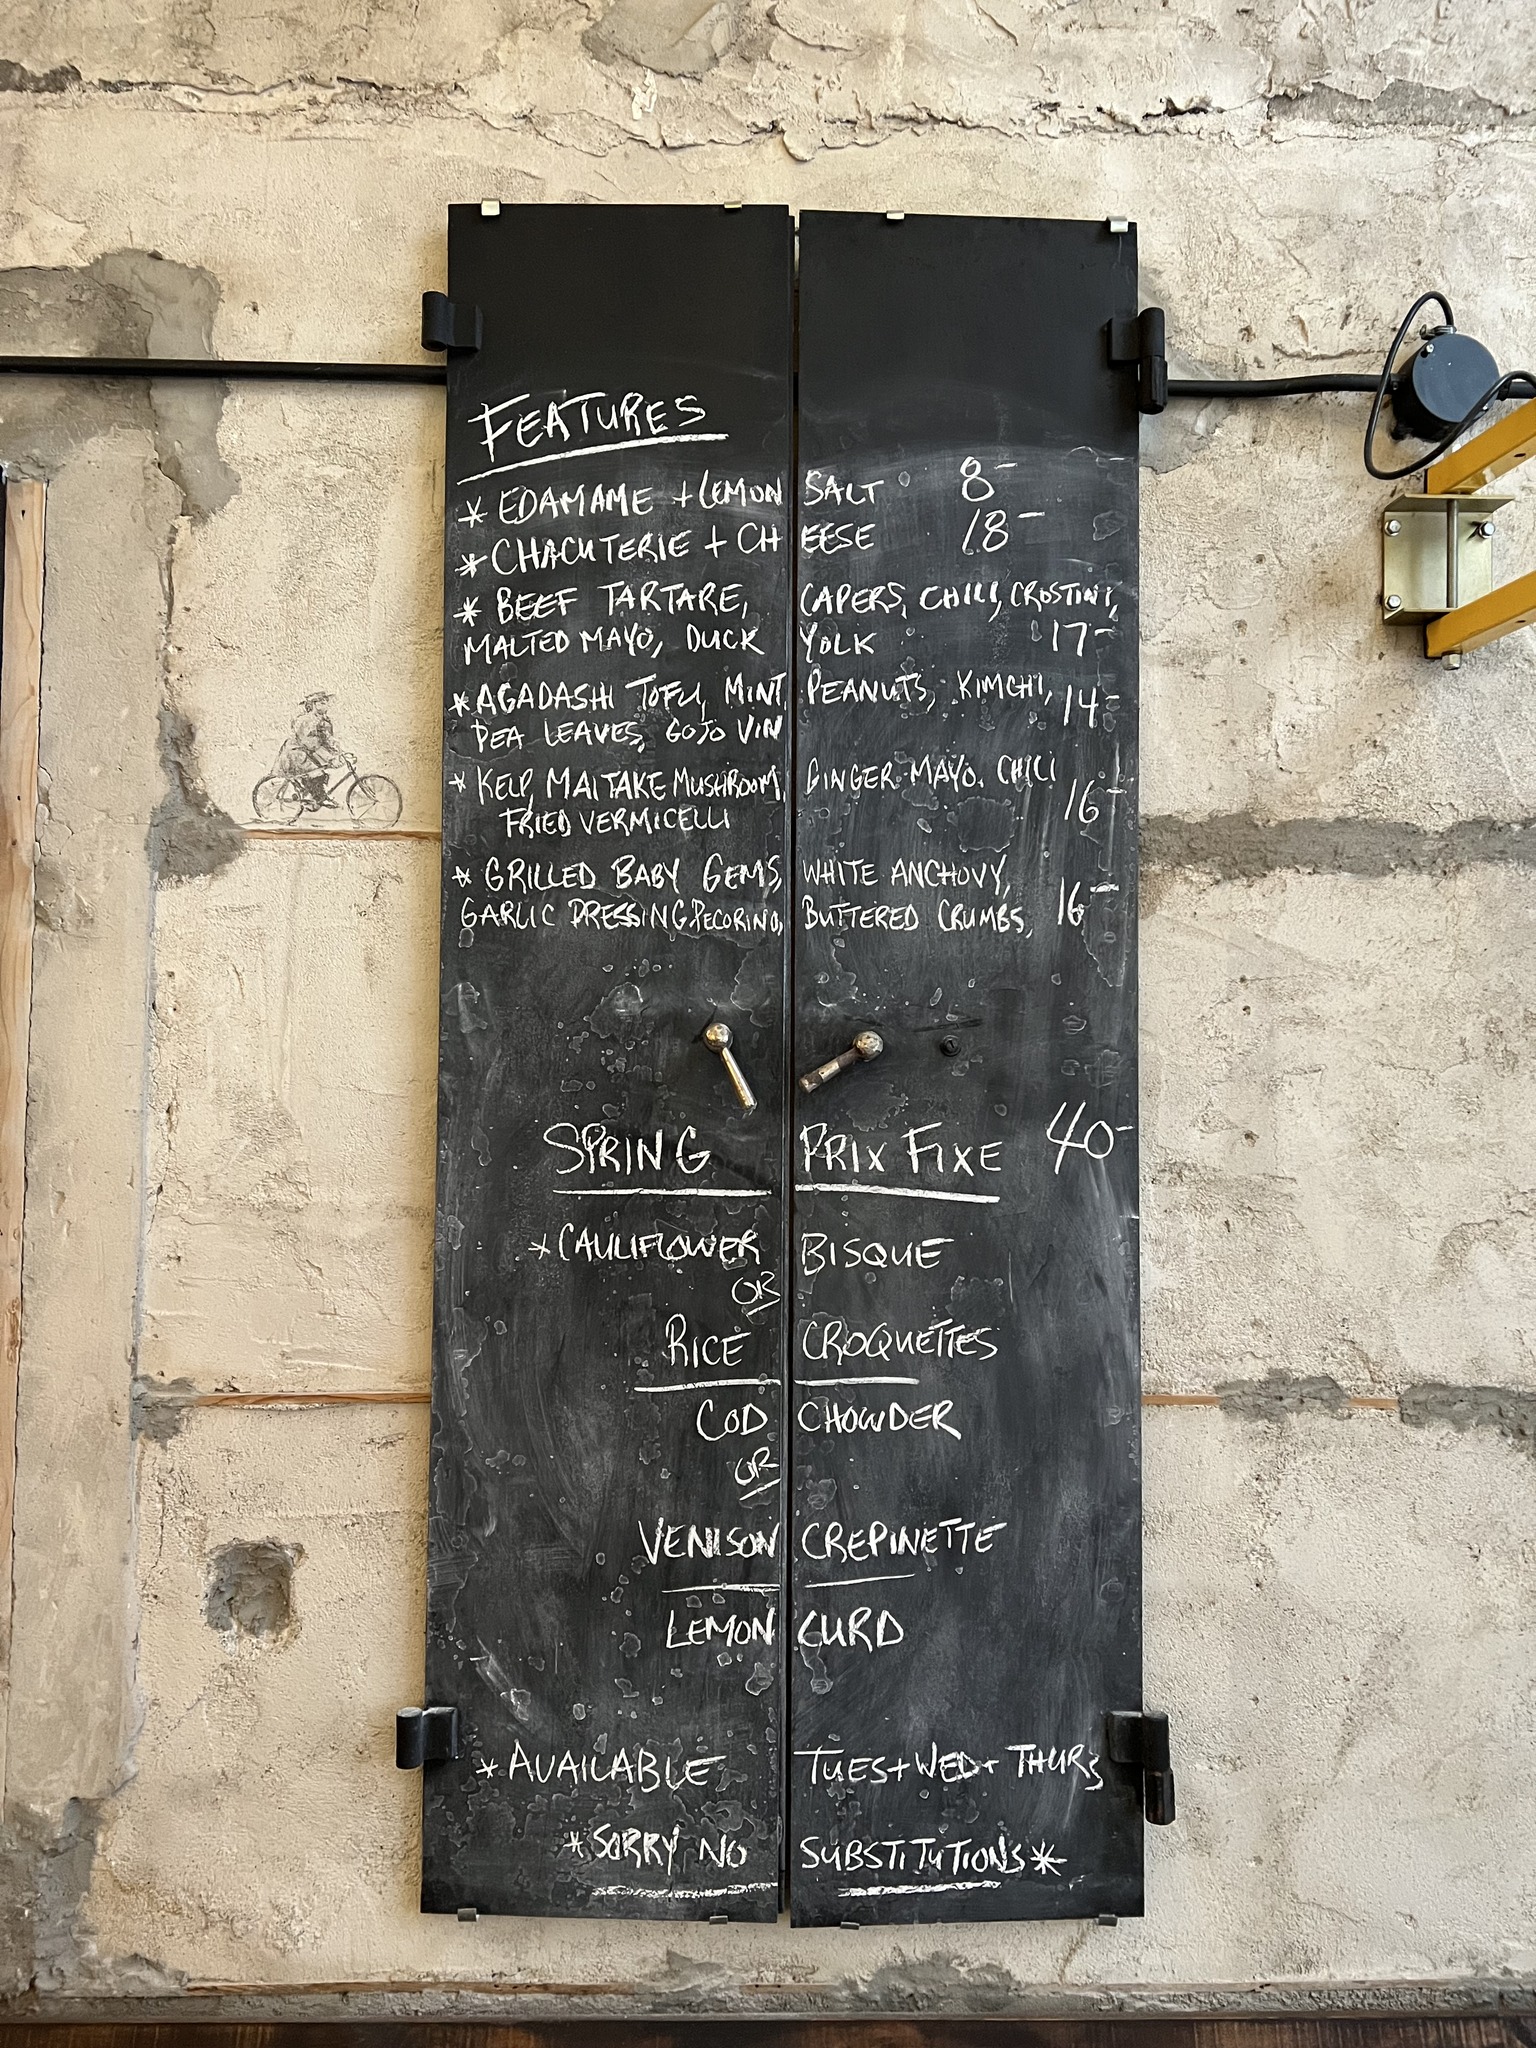 FEATURES
* EDAMAME + LEMON SALT 8-
* CHACUTERIE + CHEESE 18-
* BEEF TARTARE, CAPERS, CHILI, CROSTINI,
MALTED MAYO, DUCK YOLK 17-
* AGADASHI TOFU, MINT, PEANUTS, KIMCHI, 14-
PEA LEAVES, GOJO VIN
* KELP, MAITAKE MUSHROOM, GINGER MAYO, CHILI
FRIED VERMICELLI 16-
* GRILLED BABY GEMS, WHITE ANCHOVY,
GARLIC DRESSING, PECORINO, BUTTERED CRUMBS, 16-
SPRING PRIX FIXE 40-
* CAULIFLOWER BISQUE
OR
RICE CROQUETTES
COD CHOWDER
OR
VENISON CREPINETTE
LEMON CURD
* AVAILABLE TUES + WED + THURS
* SORRY NO SUBSTITUTIONS *